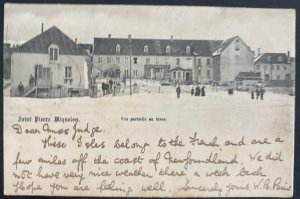 Saint Pierre Miquelon.
Vue partielle en hiver.
Dear Amos Judge.
These Isles belong to the French, and are a
few miles off the coast of Newfoundland. We did
not have very nice weather there a week back
Hope you are feeling well. Sincerely yours W. C.